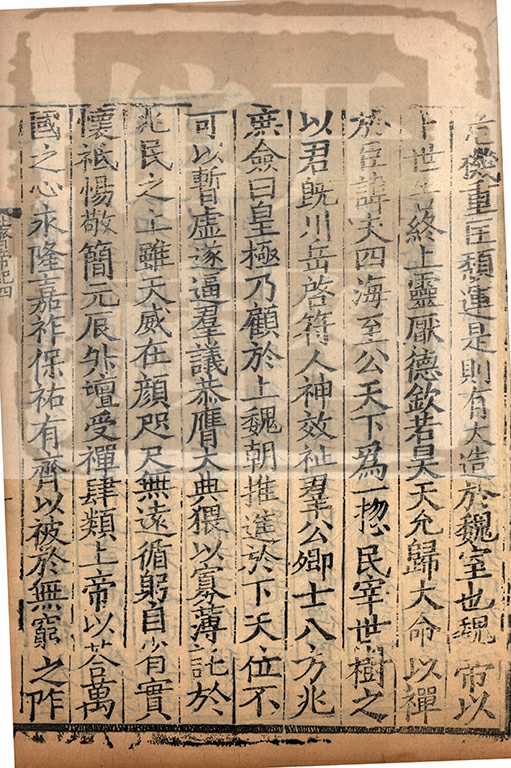 危幾重匡頽運是則有大造於魏室也魏帝以
卜世告終上靈厭德欽若昊天允歸大命以禪
於臣詳夫四海至公天下為一揔民宰世樹之
以君既川岳啓符人神效祉羣公卿士八方兆
庶僉曰皇極乃顧於上魏朝推進於下天位不
可以暫虚遂逼羣議恭膺大典猥以寡薄託於
兆民之上雖天威在顔咫尺無遠循躬自省實
懷祗惕敬簡元辰升壇受禪肆類上帝以荅萬
國之心永隆嘉祚保祐有齊以被於無窮之阼